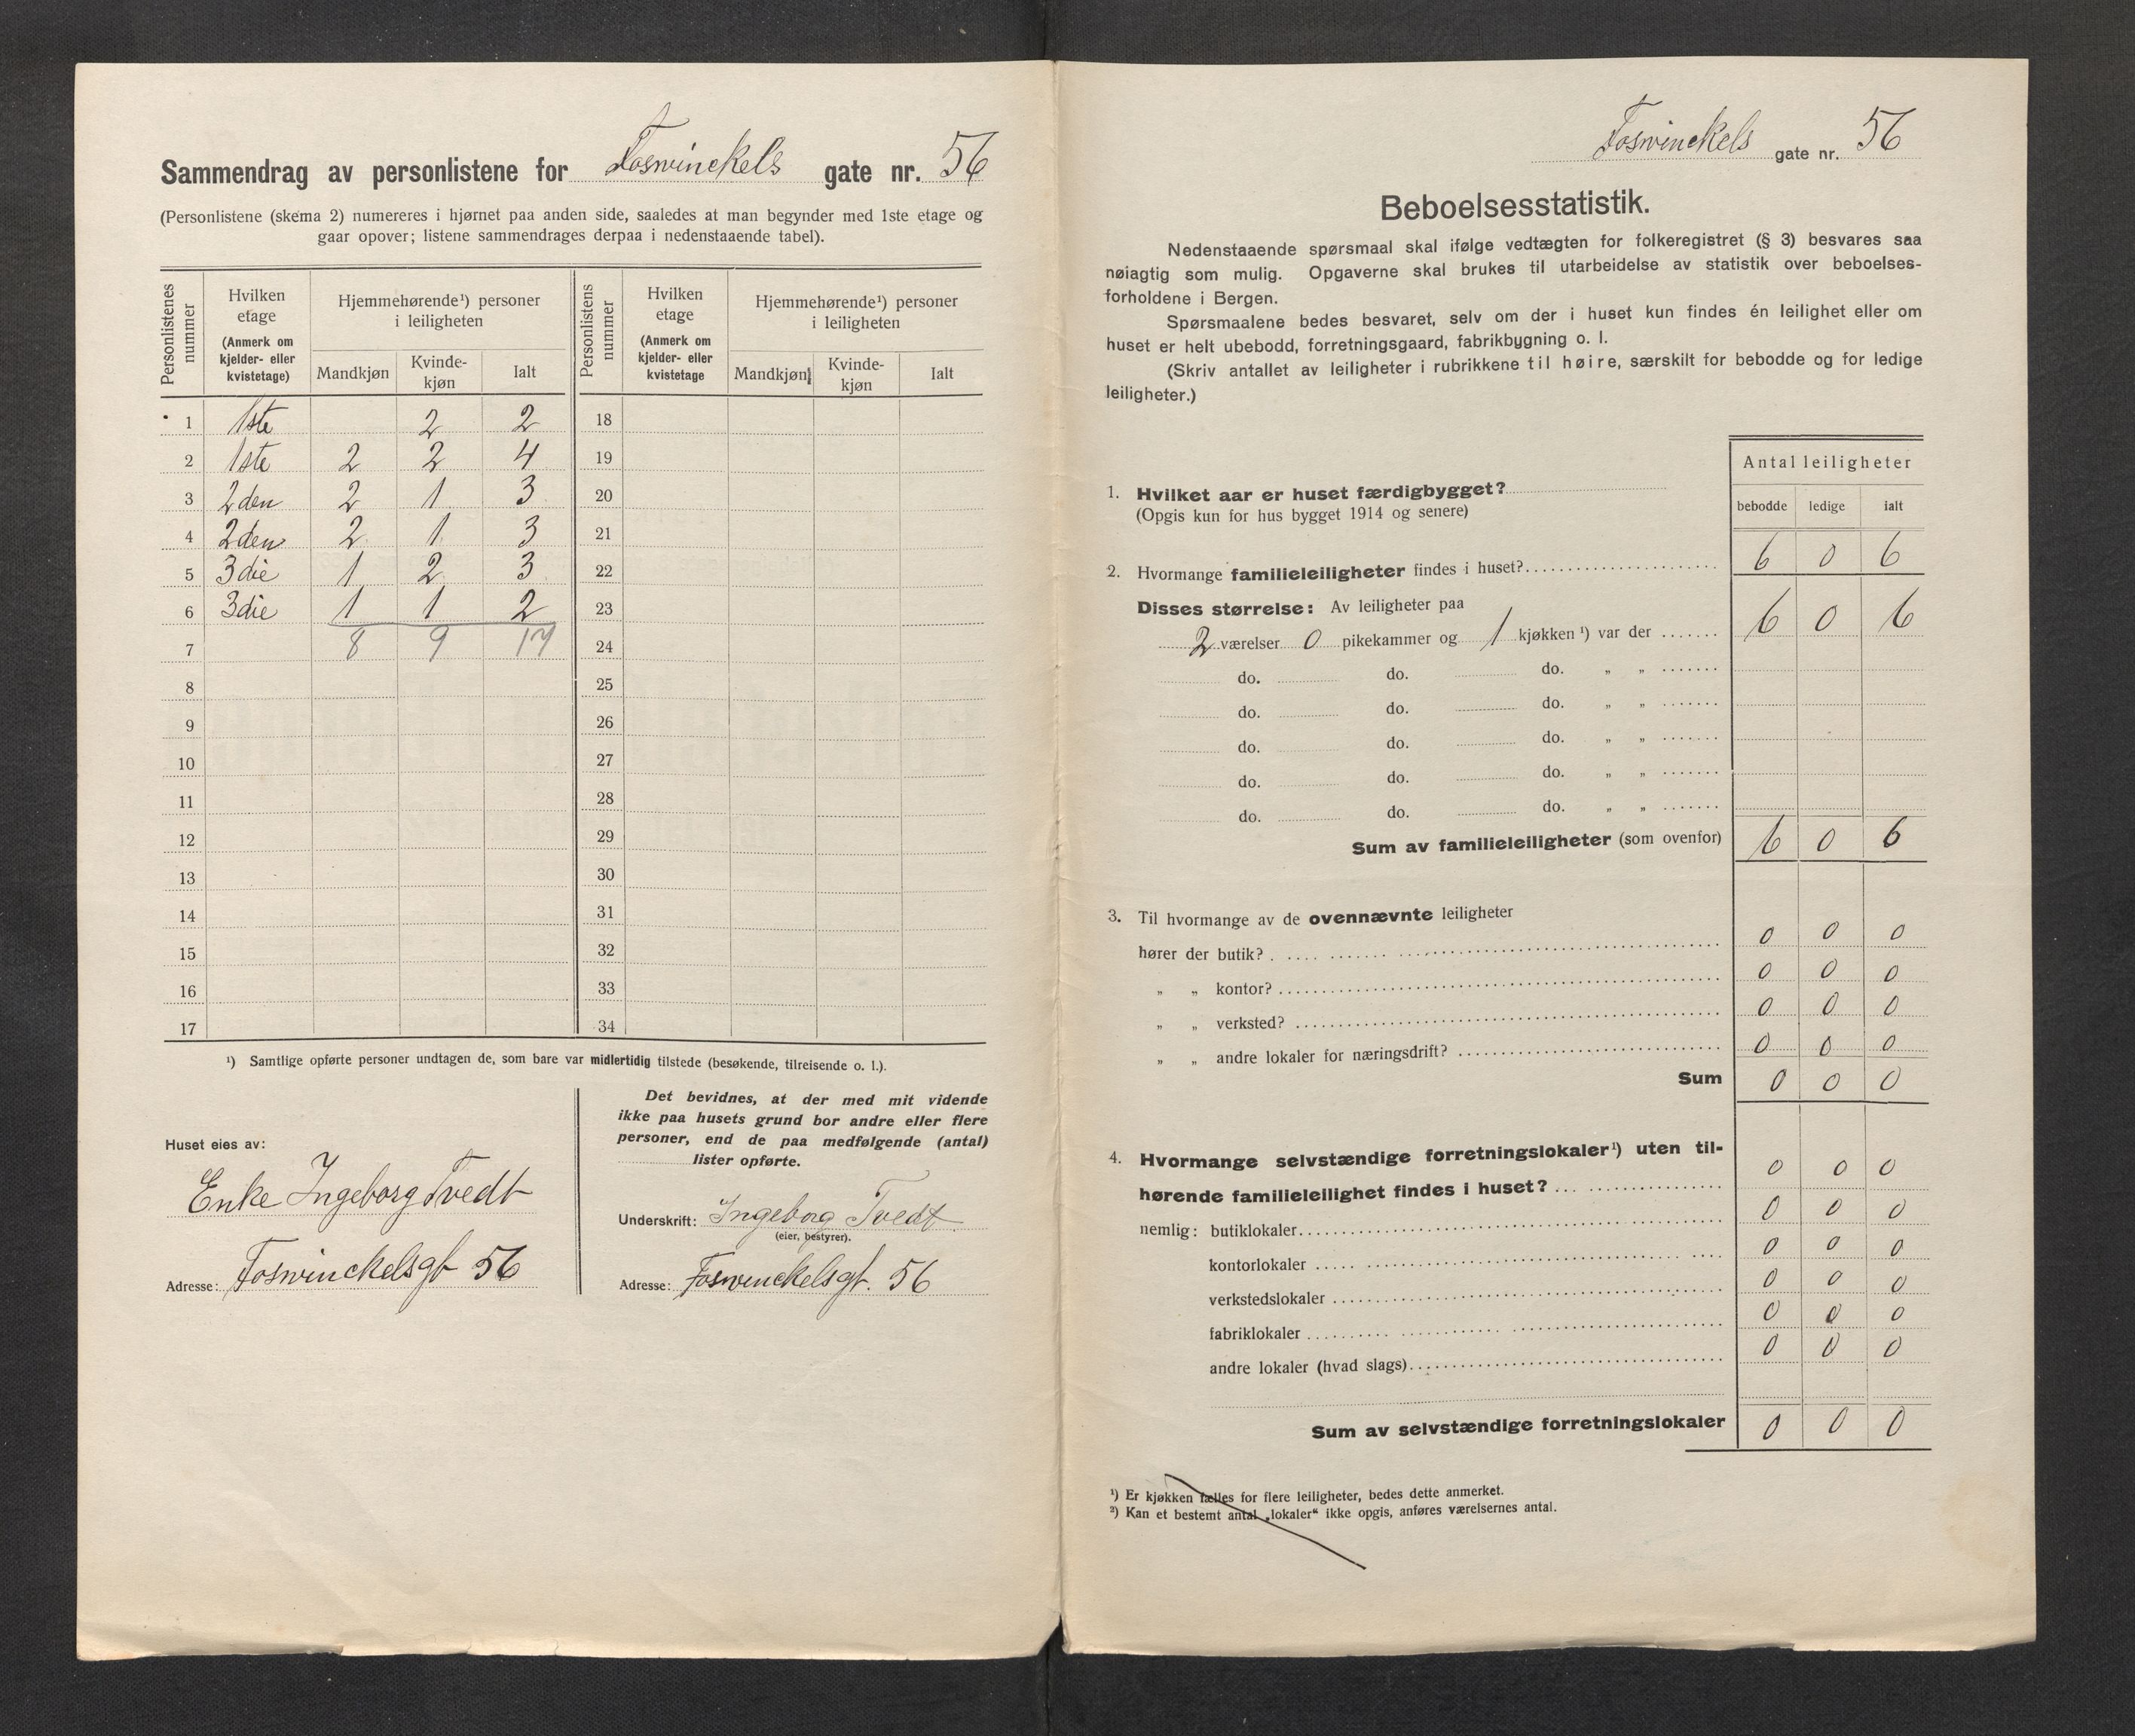 Sammendrag av personlistene for Foswinckels gate nr. 56
(Personlistene (skema 2) numereres i hjørnet paa anden side, saaledes at man begynder med 1ste etage og
gaar opover; listene sammendrages derpaa i nedenstaaende tabel).
Personlistenes nummer | Hvilken etage (Anmerk om kjelder- eller kvistetage) | Hjemmehørende¹) personer i leiligheten | Personlistens nummer | Hvilken etage (Anmerk om kjelder- eller kvistetage | Hjemmehørende¹) personer i leiligheten
Mandkjøn | Kvinde-kjøn | Ialt | Mandkjøn | Kvinde-kjøn | Ialt
1 1ste 2 2 18
2 1ste 2 2 4 19
3 2den 2 1 3 20
4 2den 2 1 3 21
5 3die 1 2 3 22
6 3die 1 1 2 23
7 8 9 17 24
8 25
9 26
10 27
11 28
12 29
13 30
14 31
15 32
16 33
17 34
¹) Samtlige opførte personer undtagen de, som bare var midlertidig tilstede (besøkende, tilreisende o. l.).
Huset eies av:
Enke Ingeborg Tvedt
Adresse: Foswinckelsgt 56
Det bevidnes, at der med mit vidende
ikke paa husets grund bor andre eller flere
personer, end de paa medfølgende (antal)
lister opførte.
Underskrift: Ingeborg Tvedt
(eier, bestyrer).
Adresse: Foswinckelsgt. 56
Foswinckels gate nr. 56
Beboelsesstatistik.
Nedenstaaende spørsmaal skal ifølge vedtægten for folkeregistret (§ 3) besvares saa
nøiagtig som mulig. Opgaverne skal brukes til utarbeidelse av statistik over beboelses-
forholdene i Bergen.
Spørsmaalene bedes besvaret, selv om der i huset kun findes én leilighet eller om
huset er helt ubebodd, forretningsgaard, fabrikbygning o. l.
(Skriv antallet av leiligheter i rubrikkene til høire, særskilt for bebodde og for ledige
leiligheter.)
Antal leiligheter
bebodde ledige ialt
1. Hvilket aar er huset færdigbygget?
(Opgis kun for hus bygget 1914 og senere)
2. Hvormange familieleiligheter findes i huset? 6 0 6
Disses størrelse: Av leiligheter paa
2 værelser 0 pikekammer og 1 kjøkken ¹) var der 6 0 6
do. do. do. „ „
do. do. do. „ „
do. do. do. „ „
do. do. do. „ „
do. do. do. „ „
Sum av familieleiligheter (som ovenfor) 6 0 6
3. Til hvormange av de ovennævnte leiligheter
hører der butik? 0 0 0
„ „ kontor? 0 0 0
„ „ verksted? 0 0 0
„ „ andre lokaler for næringsdrift? 0 0 0
Sum 0 0 0
4. Hvormange selvstændige forretningslokaler¹) uten til-
hørende familieleilighet findes i huset? 0 0 0
nemlig: butiklokaler 0 0 0
kontorlokaler 0 0 0
verkstedslokaler 0 0 0
fabriklokaler 0 0 0
andre lokaler (hvad slags) 0 0 0
Sum av selvstændige forretningslokaler 0 0 0
¹) Er kjøkken fælles for flere leiligheter, bedes dette anmerket.
²) Kan et bestemt antal „lokaler“ ikke opgis, anføres værelsernes antal.